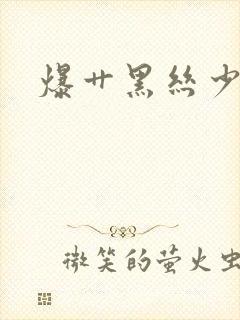 爆廿黑丝少
微笑的萤火虫